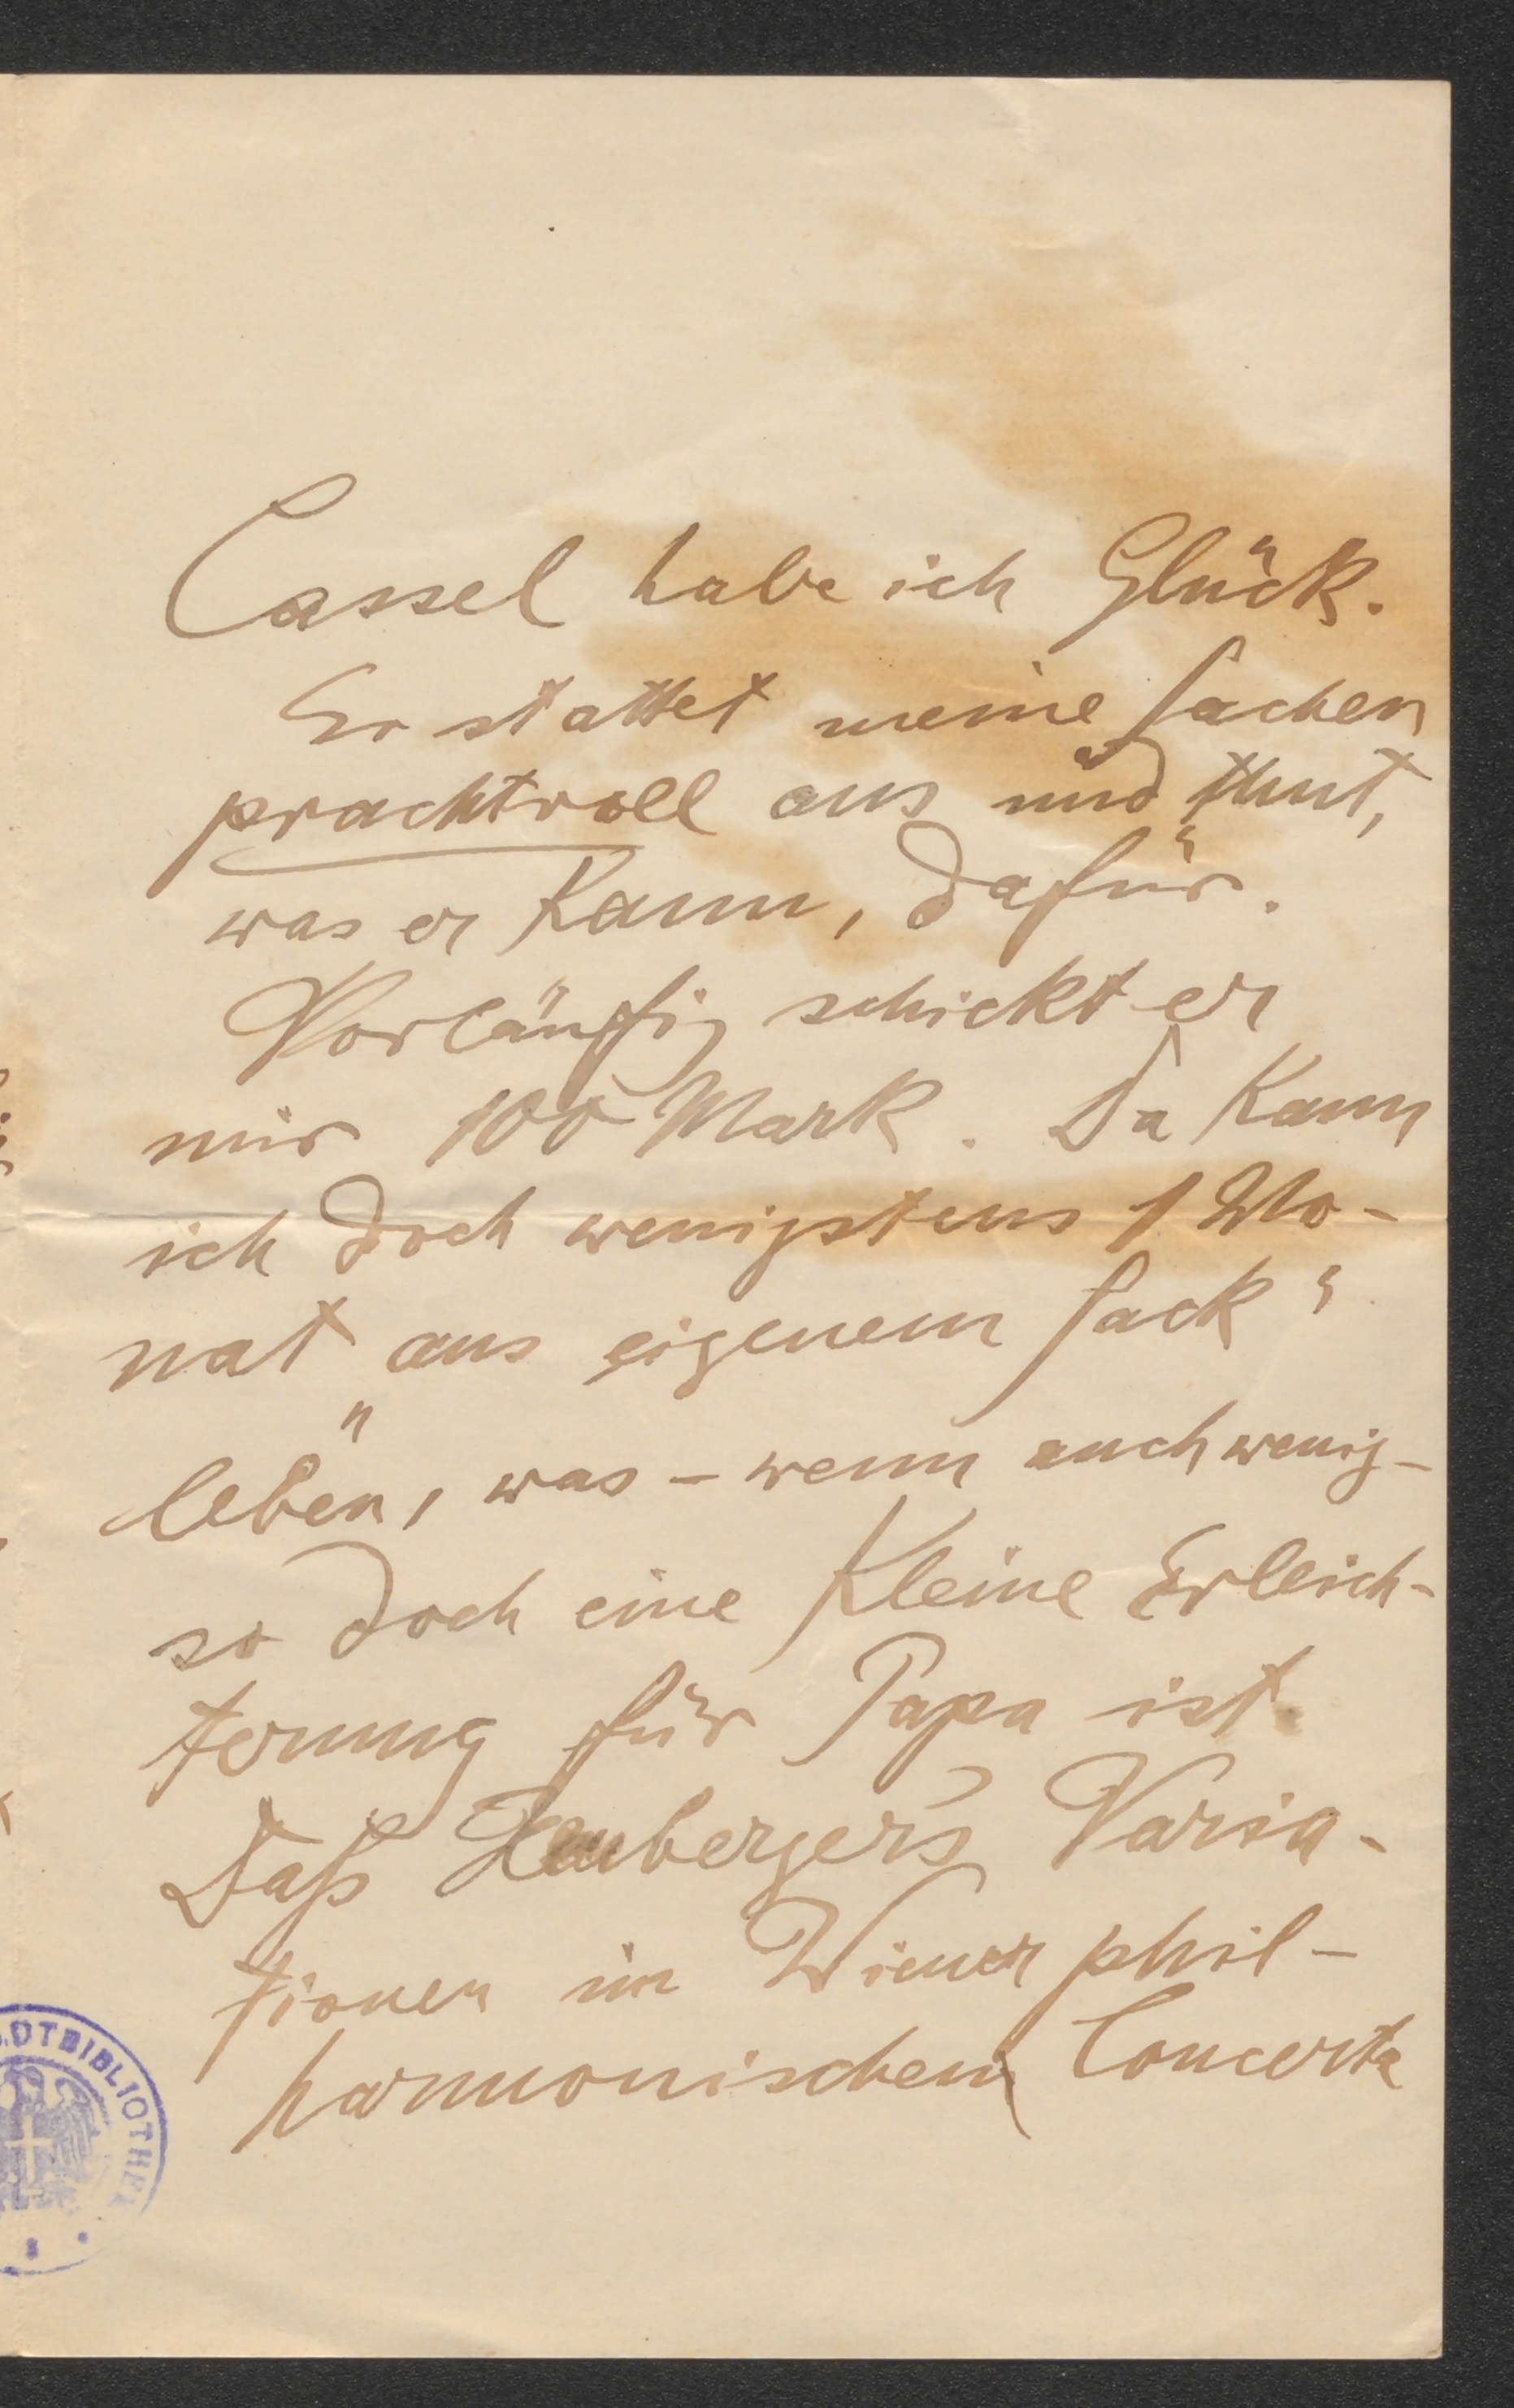 Cassel habe ich Glück.
Er stattet meine Sachen
prachtvoll aus und thut,
was er kann, dafür.
Vorläufig schickt er
mir 100 Mark. Da kann
ich doch wenigstens 1 Mo-
nat „aus eigenem Sack“
leben, was – wenn auch wenig –
so doch eine kleine Erleich-
terung für Papa ist.
Daß Heuberger's Varia-
tionen im Wiener phil-
harmonischen Concerte
ADTBIBLIOTHEK